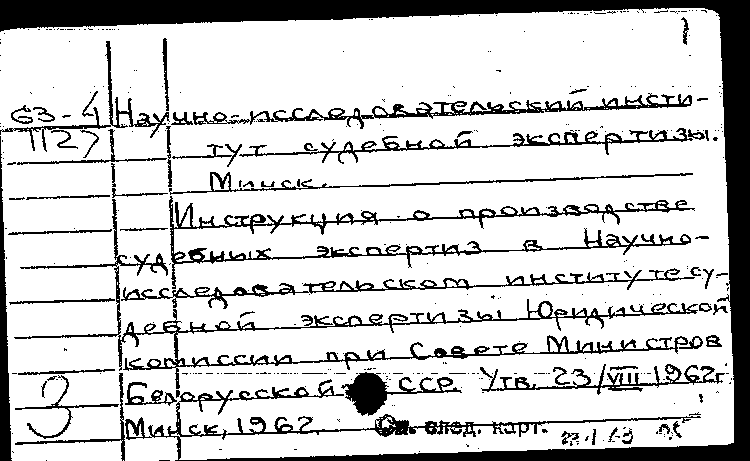 1
63-4 Научно-исследовательский инсти-
1127 тут судебной экспертизы.
Минск.
Инструкция о производстве
судебных экспертиз в Научно-
исследовательском институте су-
дебной экспертизы Юридической
комиссии при Совете Министров
Белорусской ССР. Утв. 23/VIII 1962г.
3 Минск, 1962. См. след. карт.